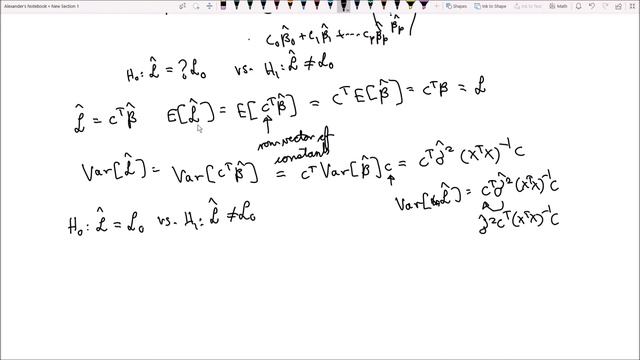 Alexander's Notebook • New Section 1
Ink to Shape
Ink to Math
c₀β̂₀ + c₁β̂₁ + ..... cₚβ̂ₚ
H₀: L̂ = ? L₀ vs. H₁: L̂ ≠ L₀
L̂ = cᵀβ̂ E[L̂] = E[cᵀβ̂] = cᵀE[β̂] = cᵀβ = L
row vector of
constants
Var[L̂] = Var[cᵀβ̂] = cᵀVar[β̂]c = cᵀσ̂²(XᵀX)⁻¹c
Var[L̂] = cᵀσ̂²(XᵀX)⁻¹c
σ̂²cᵀ(XᵀX)⁻¹c
H₀: L̂ = L₀ vs. H₁: L̂ ≠ L₀